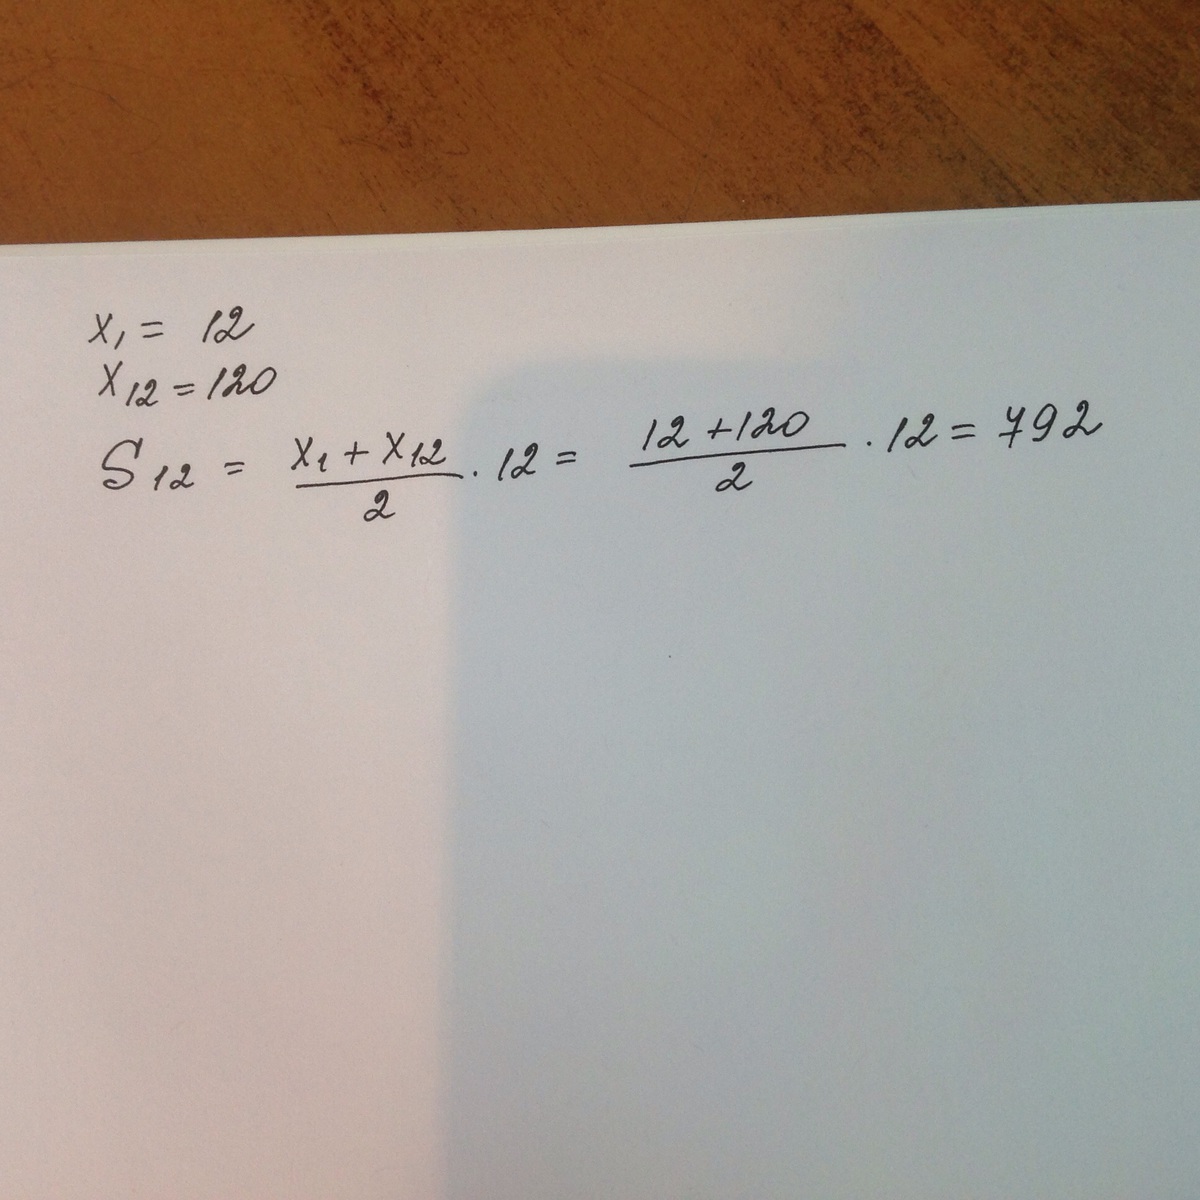 x₁ = 12
x₁₂ = 120
S₁₂ = (x₁ + x₁₂)/2 · 12 = (12 + 120)/2 · 12 = 792